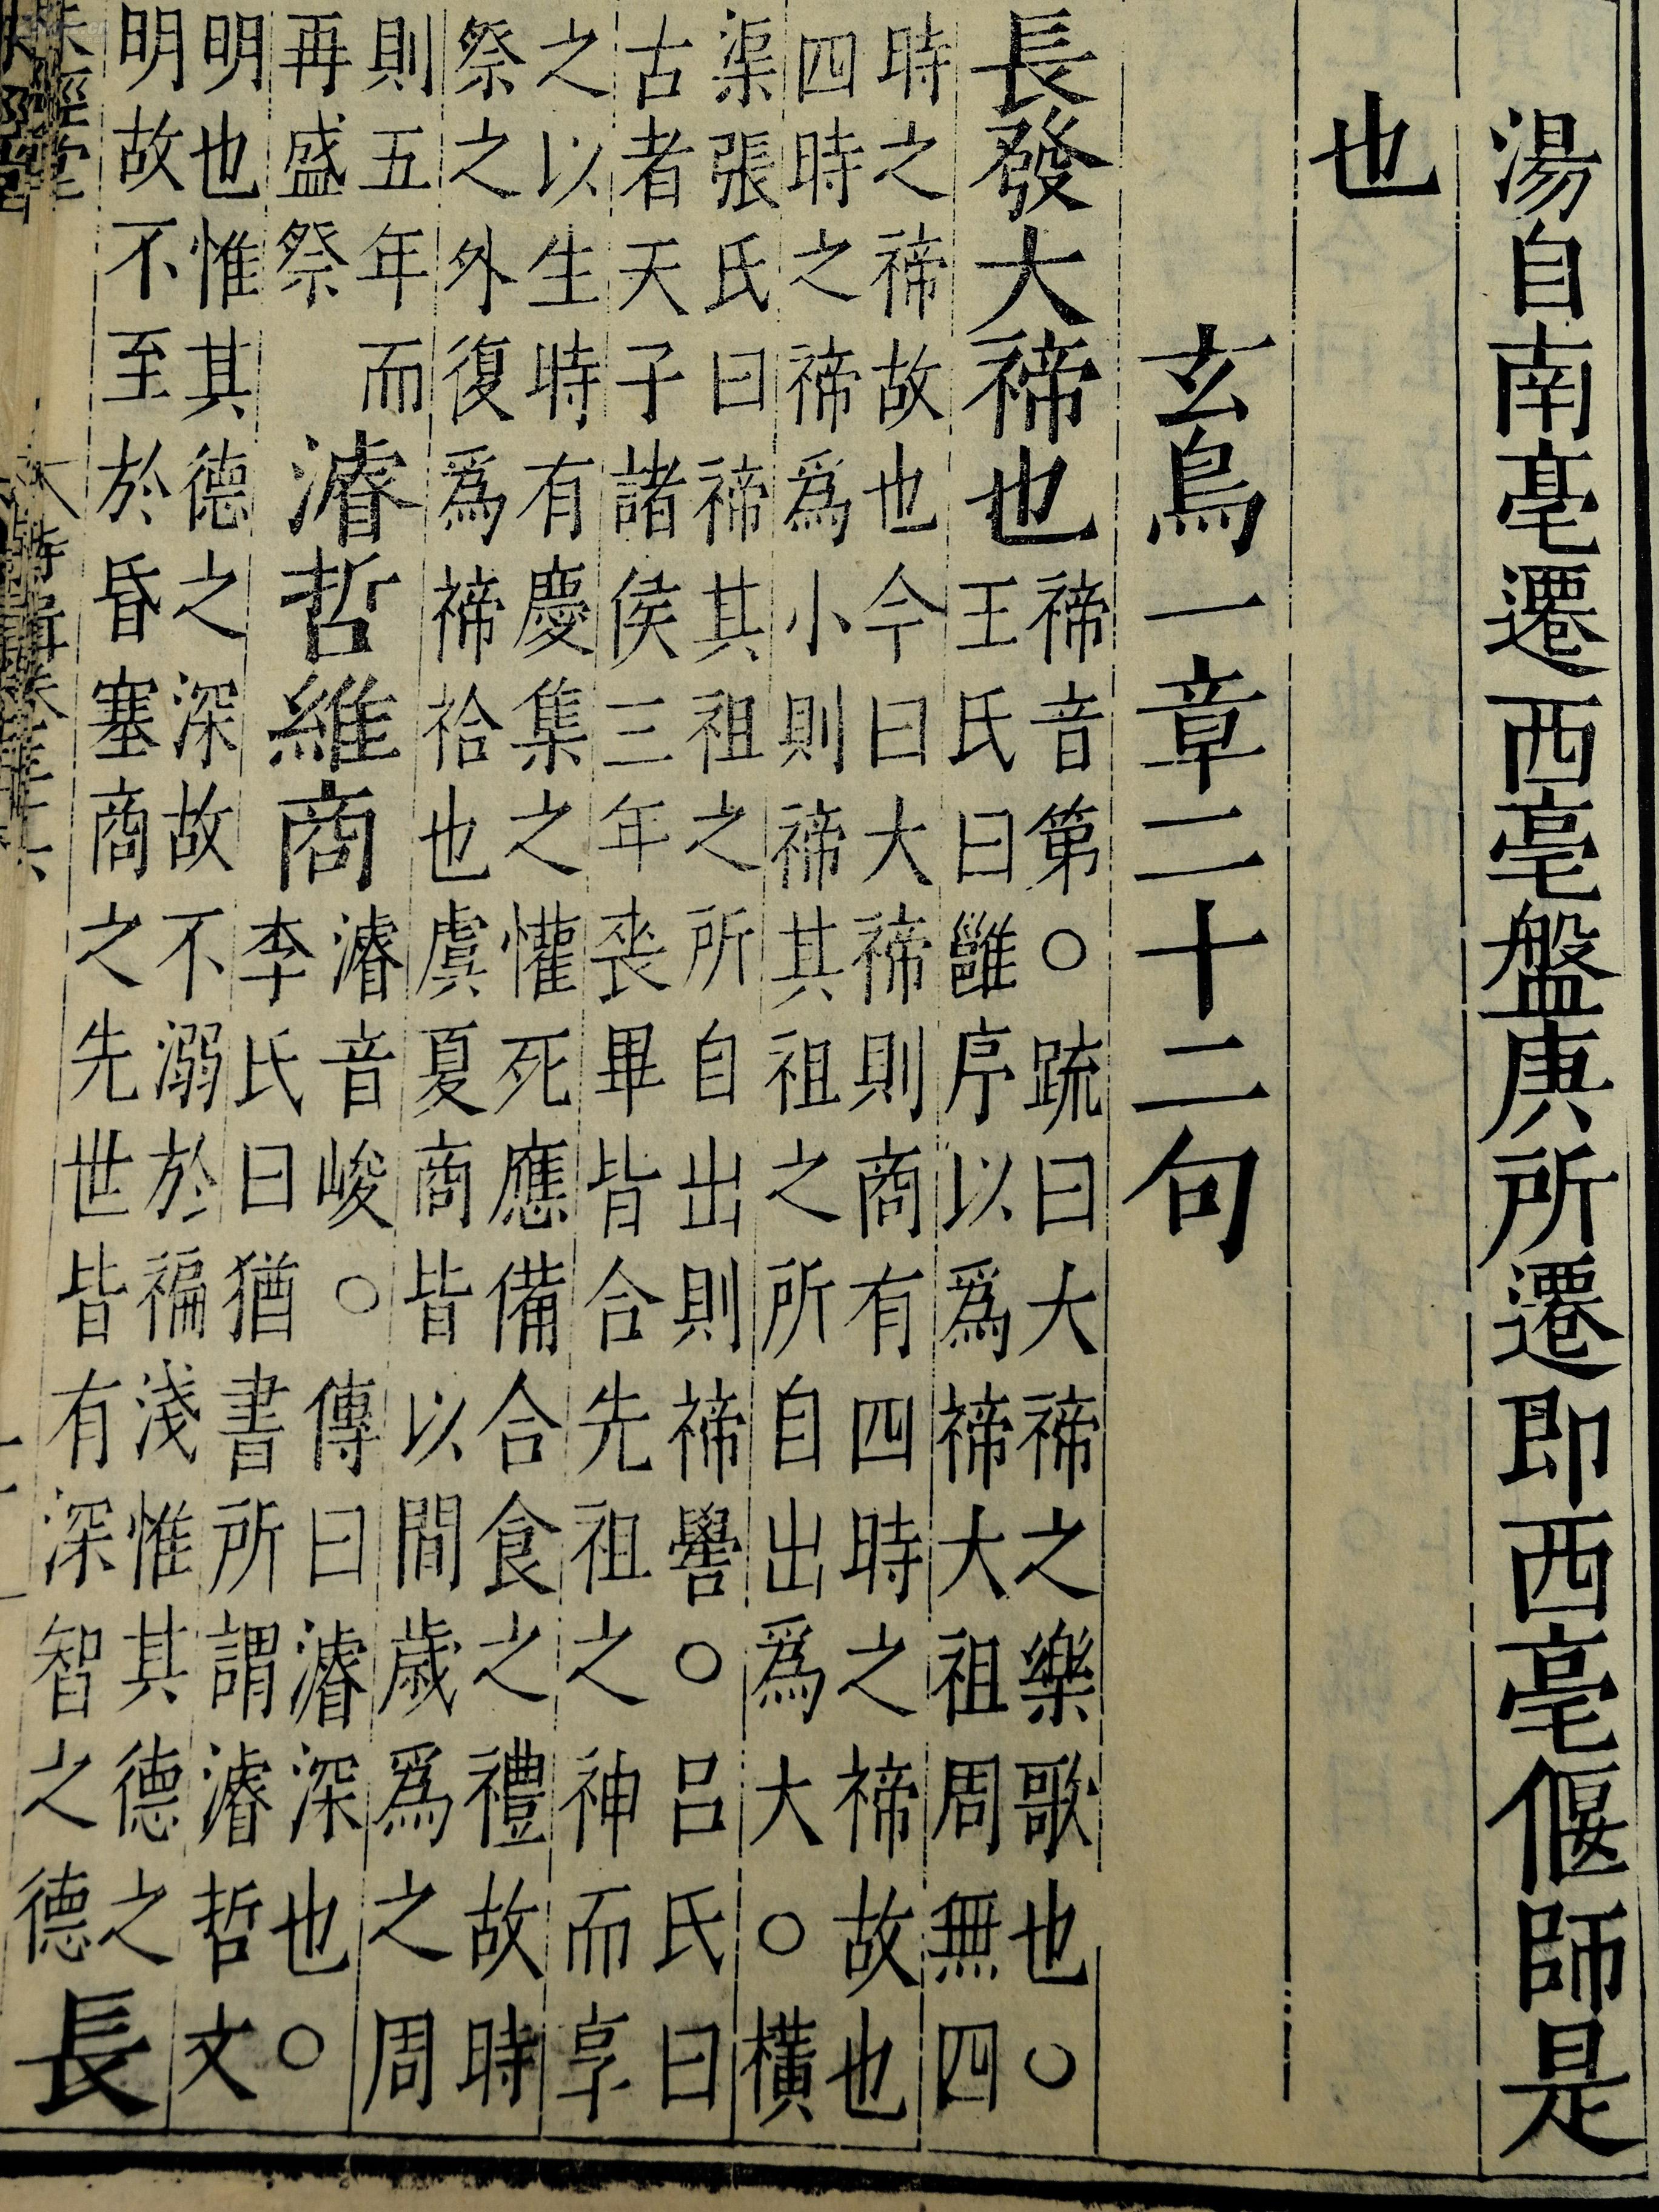 湯自南亳遷西亳盤庚所遷即西亳偃師是
也
玄鳥一章二十二句
長發大禘也
禘音第○疏曰大禘之樂歌也○
王氏曰雝序以爲禘大祖周無四
時之禘故也今曰大禘則商有四時之禘故也
四時之禘爲小則禘其祖之所自出爲大○橫
渠張氏曰禘其祖之所自出則禘嚳○呂氏曰
古者天子諸侯三年喪畢皆合先祖之神而享
之以生時有慶集之懽死應備合食之禮故時
祭之外復爲禘祫也虞夏商皆以間歲爲之周
則五年而
再盛祭
濬哲維商
濬音峻○傳曰濬深也○
李氏曰猶書所謂濬哲文
明也惟其德之深故不溺於褊淺惟其德之
明故不至於昏塞商之先世皆有深智之德
長